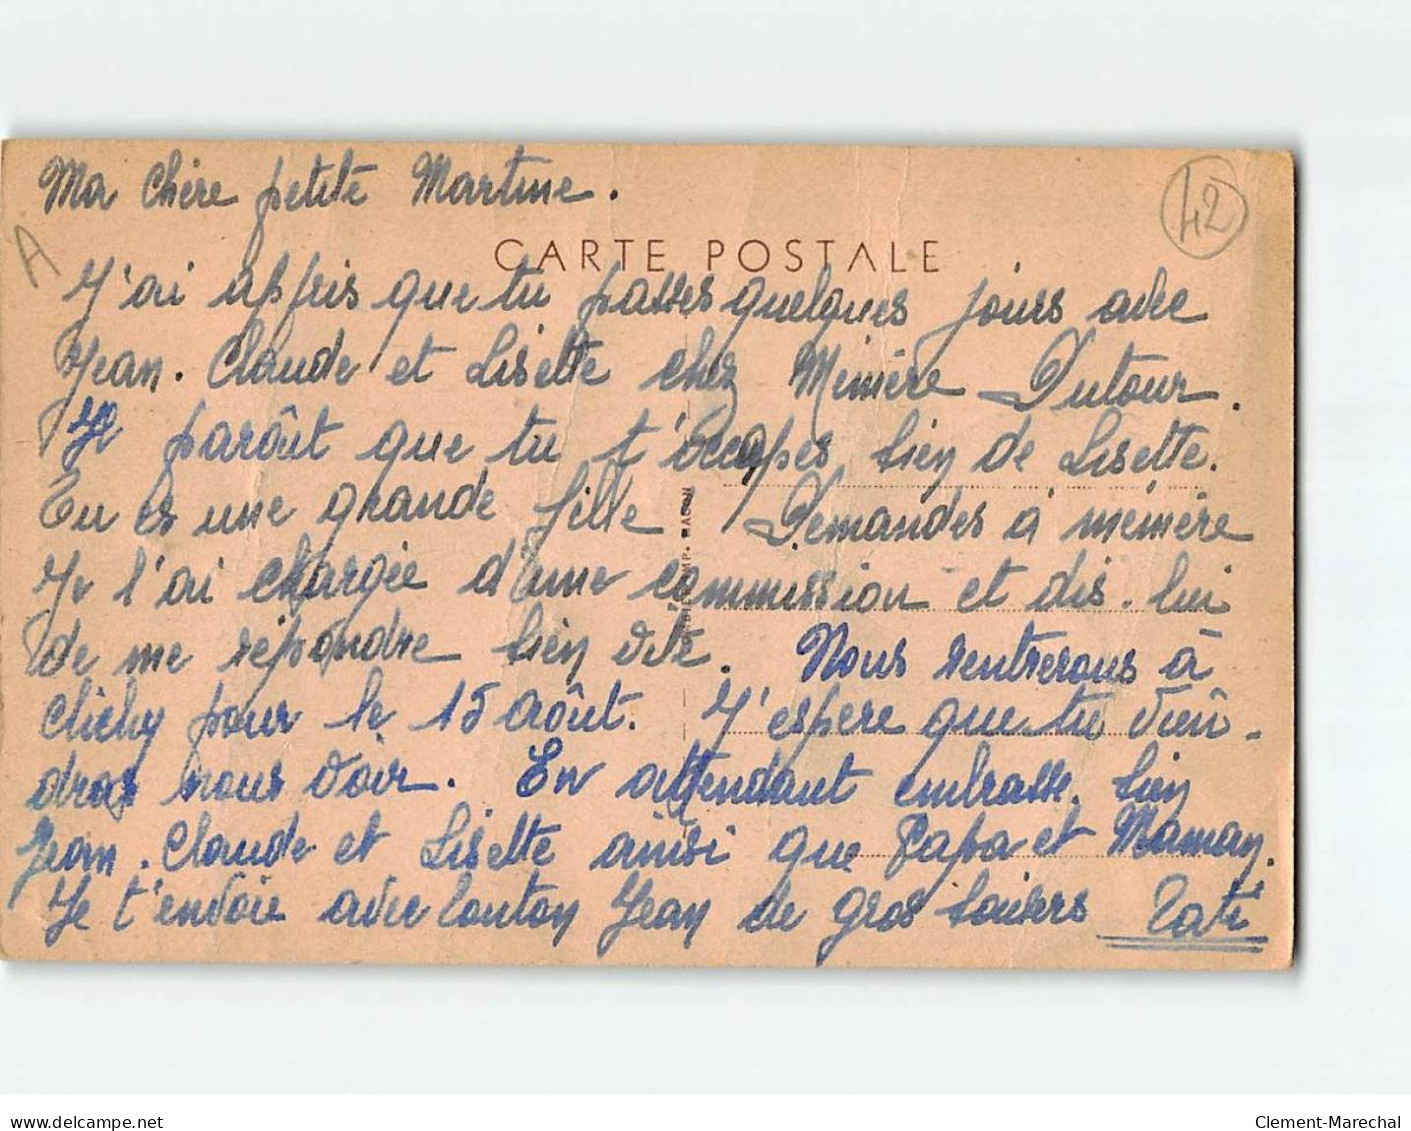 Ma Chère petite Martine.
42
A
CARTE POSTALE
J'ai appris que tu passes quelques jours avec
Jean-Claude et Lisette chez Mémère Dutour.
Il parôit que tu t'occupes bien de Lisette.
Tu es une grande fille Demandes à mémère
Je l'ai chargée d'une commission et dis-lui
de me répondre bien vite. Nous rentrerons à
Clichy pour le 15 août. J'espère que tu vien-
dras nous voir. En attendant embrasse bien
Jean-Claude et Lisette ainsi que Papa et Maman.
Je t'envoie avec tonton Jean de gros baisers Tati
IMP. MACON
delcampe.net
Clement-Marechal